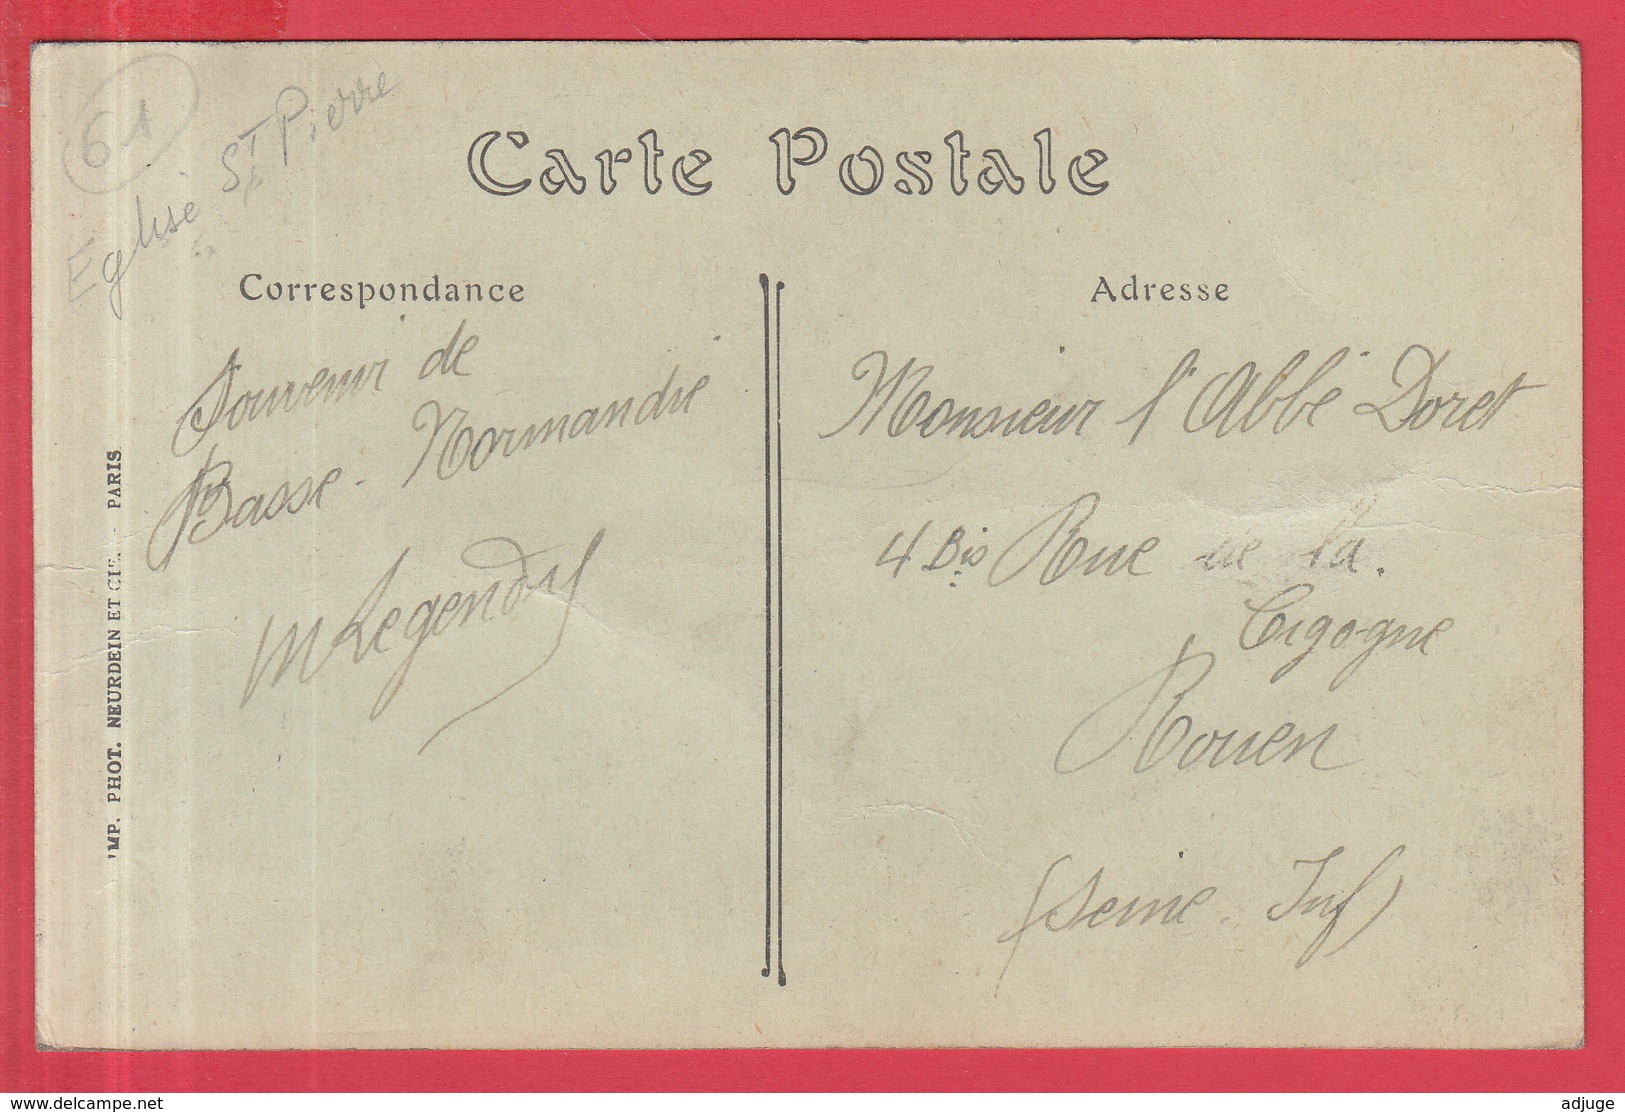 61
Eglise St Pierre
Carte Postale
Correspondance
Souvenir de
Basse-Normandie
M Legendry
Adresse
Monsieur l'Abbé Doret
4 Bis Rue de la
Cigogne
Rouen
(Seine Inf)
IMP. PHOT. NEURDEIN ET CIE. - PARIS
www.delcampe.net
adjuge